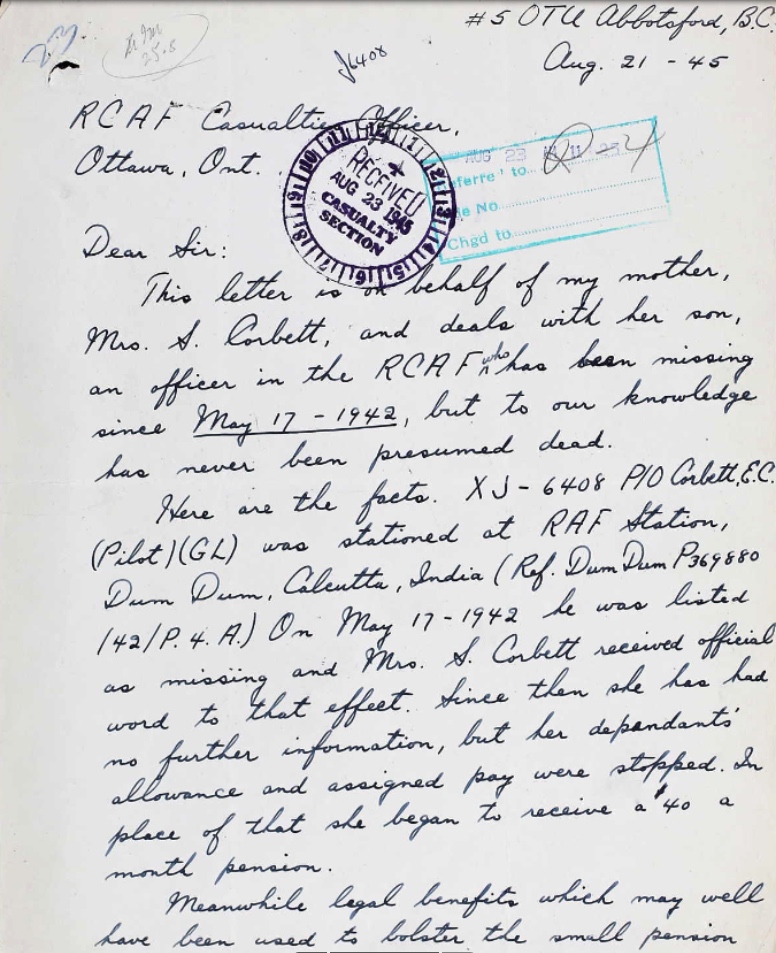 #5 OTU Abbotsford, B.C.
Aug. 21 - 45
23
25.8
J6408
RCAF Casualties Officer,
Ottawa, Ont.
RECEIVED
AUG 23 1945
CASUALTY
SECTION
AUG 23 AM 11 25
eferre to
le No
Chgd to
Dear Sir:
This letter is on behalf of my mother,
Mrs. S. Corbett, and deals with her son,
an officer in the RCAF who has been missing
since May 17 - 1942, but to our knowledge
has never been presumed dead.
Here are the facts. XJ - 6408 P/O Corbett, E.C.
(Pilot)(GL) was stationed at RAF Station,
Dum Dum, Calcutta, India (Ref. Dum Dum P369880
/42/P.4.A.) On May 17-1942 he was listed
as missing and Mrs. S. Corbett received official
word to that effect. Since then she has had
no further information, but her dependants'
allowance and assigned pay were stopped. In
place of that she began to receive a $40 a
month pension.
Meanwhile legal benefits which may well
have been used to bolster the small pension